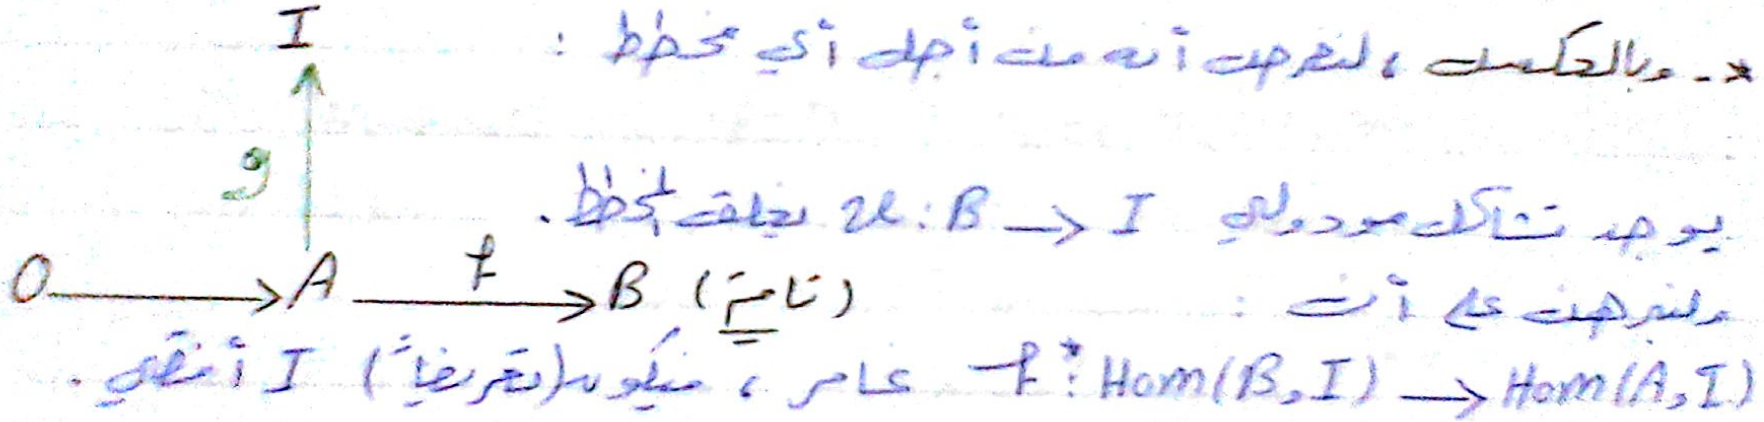 *ـ وبالعكس ، لنفرض أنه من أجل أي مخطط :
I
g
يوجد تشاكل مودولي u: B → I يغلق المخطط.
0 → A → B (تامة)
f
ولنبرهن على أن :
f*: Hom(B, I) → Hom(A, I) غامر ، فيكون (تعريفاً) I أفقي .